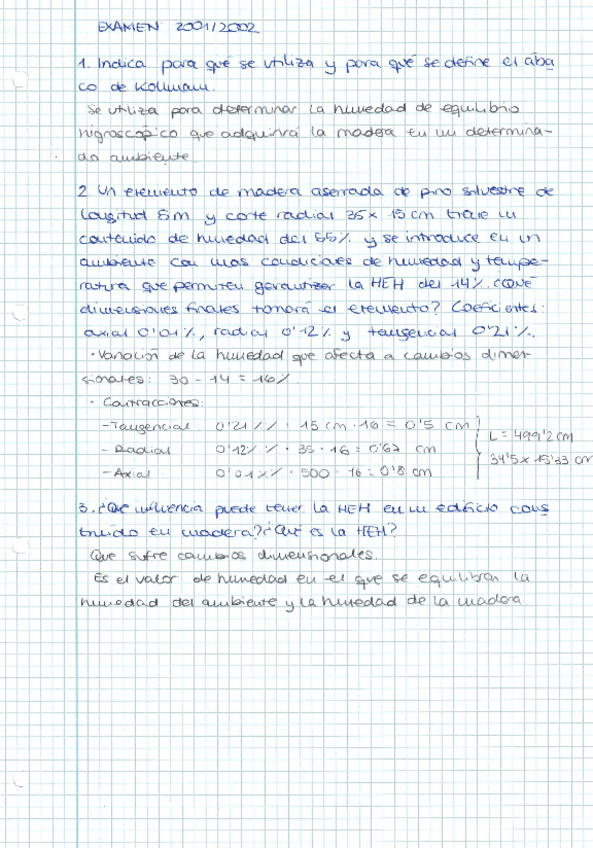 EXAMEN 2001/2002
1. Indica para qué se utiliza y para qué se define el ába
co de Kollmann.
Se utiliza para determinar la humedad de equilibrio
higroscópico que adquirirá la madera en un determina-
do ambiente
2 Un elemento de madera aserrada de pino silvestre de
longitud 5m y corte radial 35x 15 cm tiene un
contenido de humedad del 55% y se introduce en un
ambiente con unas condiciones de humedad y tempe-
ratura que permiten garantizar la HEH del 14%. ¿Qué
dimensiones finales tomará el elemento? Coeficientes:
axial 0'01%, radial 0'12% y tangencial 0'21%.
· Variación de la humedad que afecta a cambios dimen-
sionales: 30 - 14 = 16%
· Contracciones:
- Tangencial 0'21%/% · 15 cm · 16 = 0'5 cm
- Radial 0'12%/% · 35 · 16 = 0'67 cm
- Axial 0'01%/% · 500 · 16 = 0'8 cm
L = 499'2 cm
34'5 x 15'33 cm
3. ¿Qué influencia puede tener la HEH en un edificio cons
truido en madera? ¿Qué es la HEH?
Que sufre cambios dimensionales.
Es el valor de humedad en el que se equilibran la
humedad del ambiente y la humedad de la madera